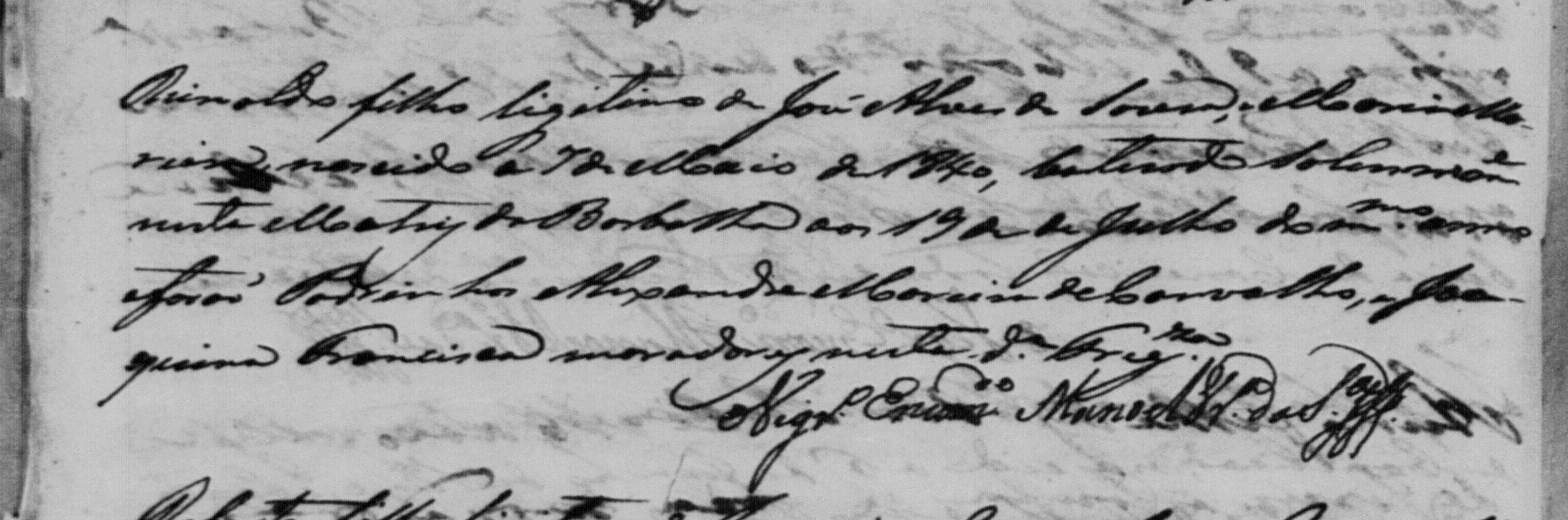 Reinaldo filho ligitimo de José Alves de Souza, e Maria Ma-
ria nascido a 7 de Maio de 1840, batisado Solemnem.e
nesta Matriz do Borba aos 19 de de Julho do m.mo anno
e forão Padrinhos Alexandre Maria de Carvalho, e Joa-
quina Francisca moradores nesta d.a Freg.za
O Vigr.o Encom.do Manoel